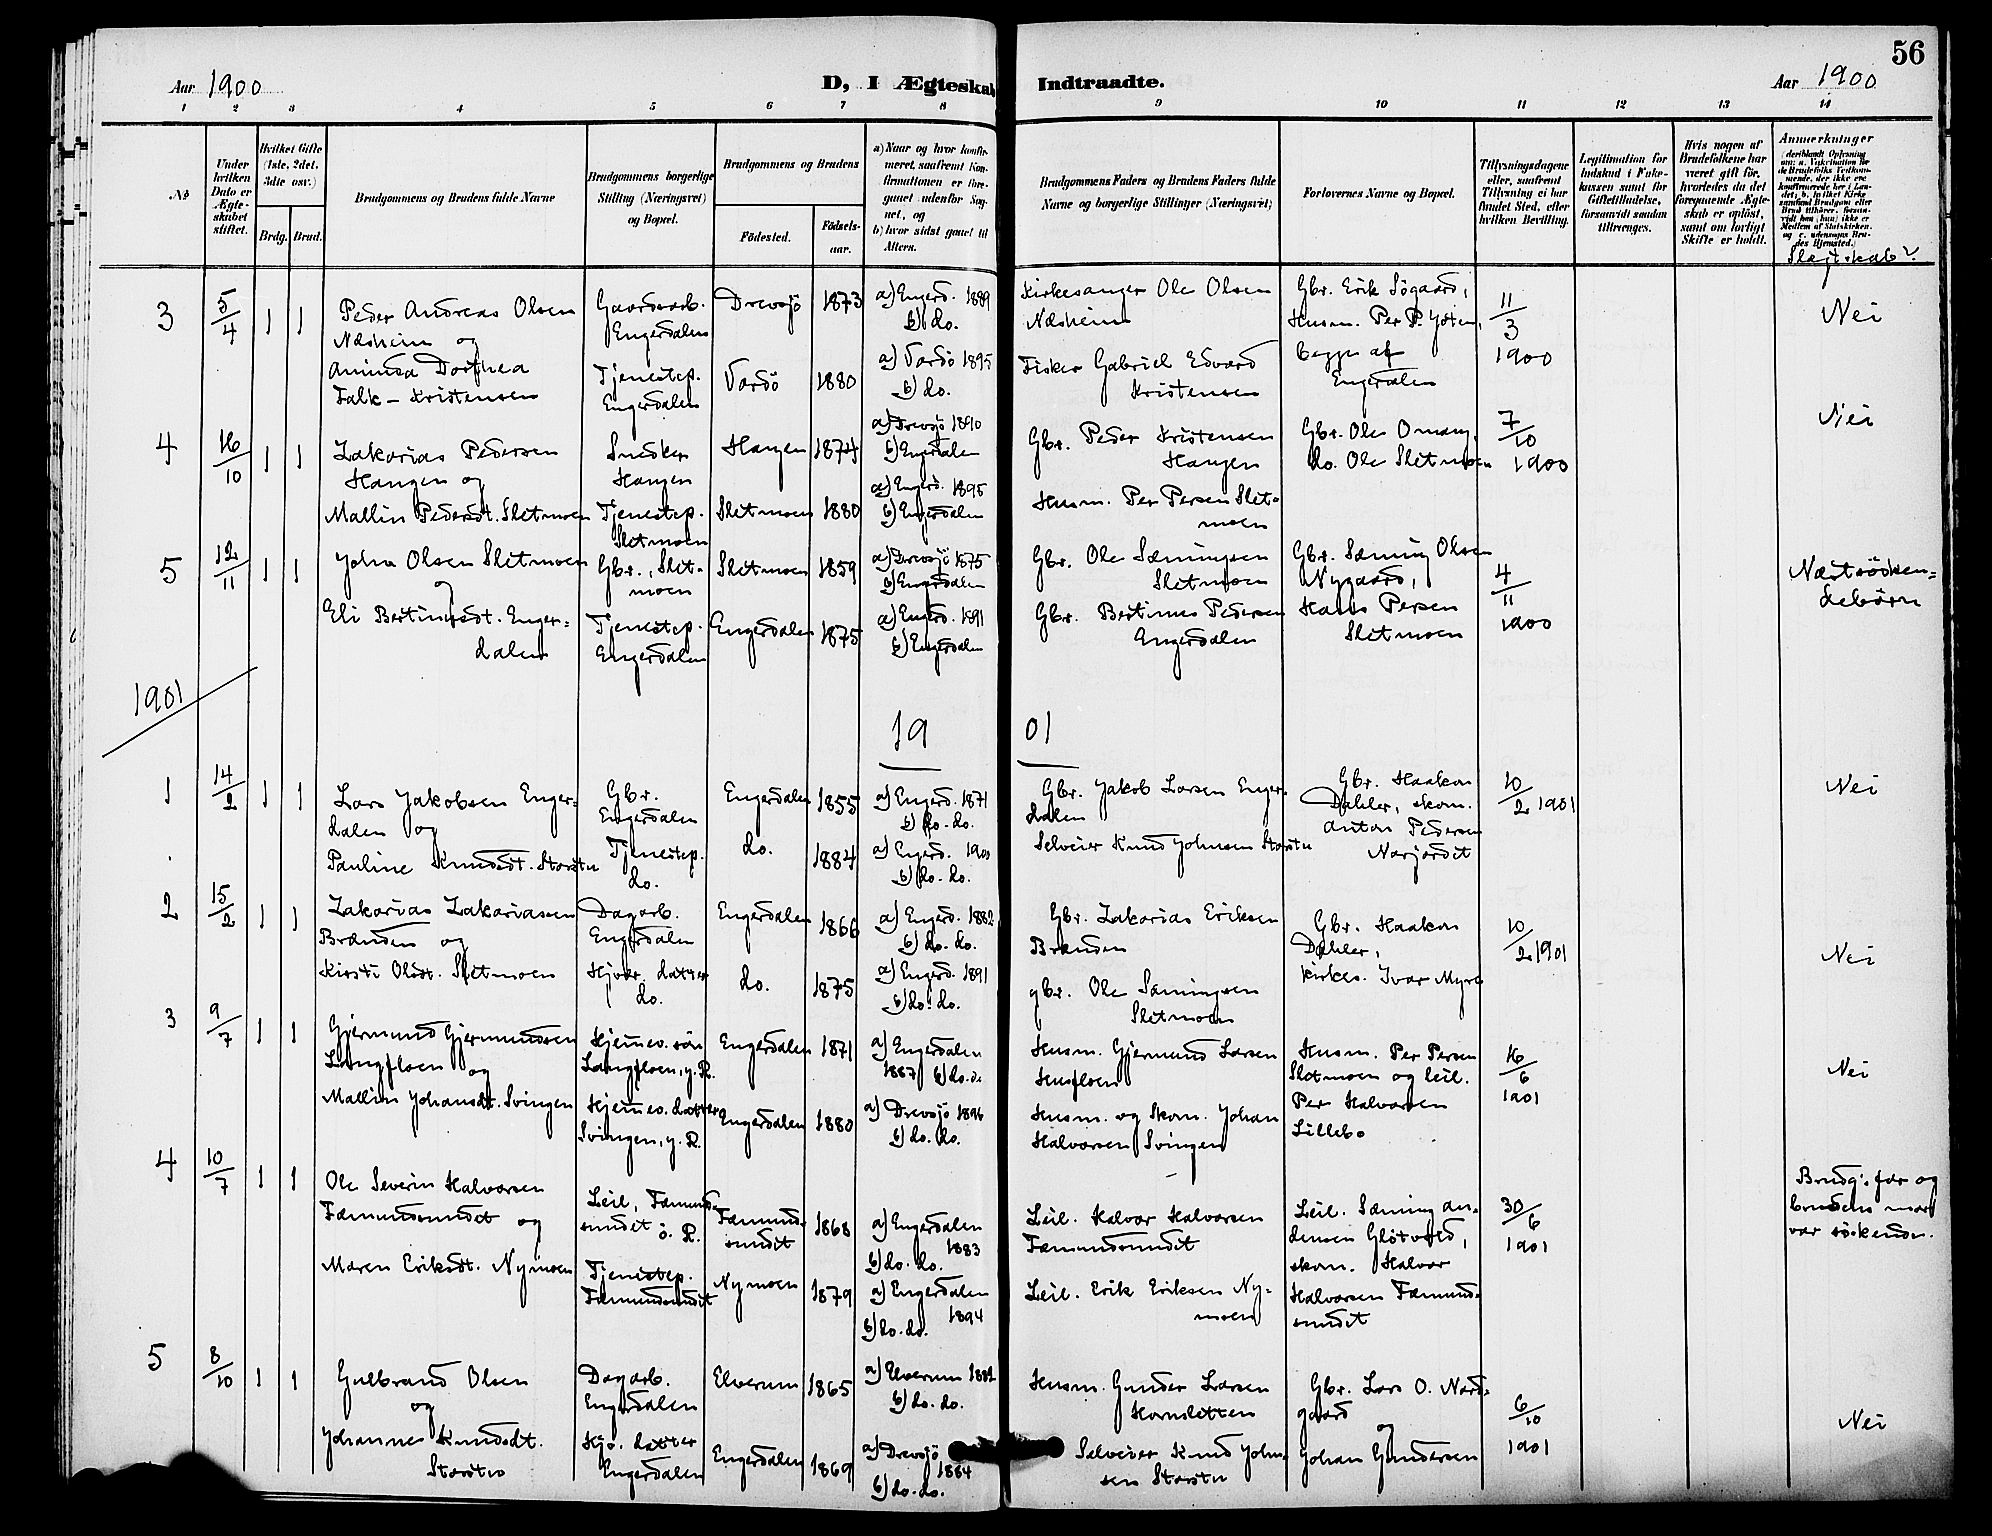 56
Aar 1900
D, I Ægteskab Indtraadte.
Aar 1900
1 2 3 4 5 6 7 8 9 10 11 12 13 14
No
Under hvilken Dato er Ægteskabet stiftet.
Hvilket Gifte (1ste, 2det, 3die osv.)
Brdg. Brud.
Brudgommens og Brudens fulde Navne
Brudgommens borgerlige Stilling (Næringsvei) og Bopæl.
Brudgommens og Brudens
Fødested.
Fødselsaar.
a) Naar og hvor konfirmeret, saafremt Konfirmationen er foregaaet udenfor Sognet, og
b) hvor sidst gaaet til Alters.
Brudgommens Faders og Brudens Faders fulde Navne og borgerlige Stillinger (Næringsvei)
Forlovernes Navne og Bopæl.
Tillysningsdagene eller, saafremt Tillysning ei har fundet Sted, efter hvilken Bevilling.
Legitimation for Indskud i Enkekassen samt for Giftetilladelse, forsaavidt saadan tiltrænges.
Hvis nogen af Brudefolkene har været gift før, hvorledes da det foregaaende Ægteskab er opløst, samt om lovligt Skifte er holdt.
Anmerkninger
Slægtskab?
3 5/4 1 1 Peder Andreas Olsen Næsheim og
Gaardsarb. Engerdalen
Drevsjö 1873 a) Engerd. 1889 b) do.
Kirkesanger Ole Olsen Næsheim
Gbr. Erik Sögaard, Husm. Per P. Ysten, begge af Engerdalen
11/3 1900
Nei
Dorthea Falk-Kristensen
Tjenestep. Engerdalen
Vardö 1880 a) Vardö 1895 b) do.
Fisker Gabriel Edvard Kristensen
4 16/10 1 1 Zakarias Pedersen Hangen og
Snedker Hangen
Hangen 1874 a) Drevsjö 1890 b) Engerdalen
Gbr. Peder Kristensen Hangen
Gbr. Ole Omang, do. Ole Sletmoen
7/10 1900
Nei
Mallin Pedersdt. Sletmoen
Tjenestep. Sletmoen
Sletmoen 1880 a) Engerd. 1895 b) Engerdalen
Husm. Per Persen Sletmoen
5 12/11 1 1 John Olsen Sletmoen og
Gbr., Sletmoen
Sletmoen 1859 a) Drevsjö 1875 b) Engerdalen
Gbr. Ole Sæmingsen Sletmoen
Gbr. Sæming Olsen Nygaard, Hans Persen Sletmoen
4/11 1900
Næstsöskendebörn
Eli Bertinusdt. Engerdalen
Tjenestep. Engerdalen
Engerdalen 1875 a) Engerd. 1891 b) Engerdalen
Gbr. Bertinus Pedersen Engerdalen
1901
19 01
1 14/2 1 1 Lars Jakobsen Engerdalen og
Gbr. Engerdalen
Engerdalen 1855 a) Engerd. 1871 b) do. do.
Gbr. Jakob Larsen Engerdalen
Gbr. Haakon Dahler, skom. Anton Pedersen Norjordet
10/2 1901
Nei
Pauline Knudsdt. Storstu
Tjenestep. do.
do. 1884 a) Engerd. 1900 b) do. do.
Selveier Knud Johnsen Storstu
2 15/2 1 1 Zakarias Zakariassen Brænden og
Dagarb. Engerdalen
Engerdalen 1866 a) Engerd. 1882 b) do. do.
Gbr. Zakarias Eriksen Brænden
Gbr. Haakon Dahler, kirkes. Ivar Myre
10/2 1901
Nei
Kirsti Olsdt. Sletmoen
Hjvær. datter do.
do. 1875 a) Engerd. 1891 b) do. do.
gbr. Ole Sæmingsen Sletmoen
3 9/7 1 1 Gjermund Gjermundsen Langfloen og
Hjemv. sön Langfloen, y. R.
Engerdalen 1871 a) Engerdalen 1887 b) do. do
Husm. Gjermund Larsen Husfloen
Husm. Per Persen Sletmoen og leil. Per Halvorsen Lillebo
16/6 1901
Nei
Mallin Johansdt. Svingen
Hjemv. datter Svingen, y. R.
Engerdalen 1880 a) Drevsjö 1896 b) do. do.
Husm. og Skom. Johan Halvorsen Svingen
4 10/7 1 1 Ole Severin Halvorsen Fæmundsundet og
Leil, Fæmundsundet ö. R.
Fæmundsundet 1868 a) Engerdalen 1883 b) do. do.
Leil. Halvor Halvorsen Fæmundsundet
Leil. Sæming Andersen Glötvold, skom. Halvor Halvorsen Fæmundsundet
30/6 1901
Brudg. far og brudens mor var söskende.
Maren Eriksdt. Nymoen
Tjenestep. Fæmundsundet
Nymoen 1879 a) Engerdalen 1894 b) do. do.
Leil. Erik Eriksen Nymoen
5 8/10 1 1 Gulbrand Olsen og
Dagarb. Engerdalen
Elverum 1865 a) Elverum 1882 b) do. do.
Husm. Gunder Larsen Hornsletten
Gbr. Lars O. Nordgaard og Johan Gundersen
6/10 1901
Nei
Johanne Knudsdt. Storstu
Hjv. datter Engerdalen
Engerdalen 1869 a) Drevsjö 1884 b) do. do.
Selveier Knud Johnsen Storstu